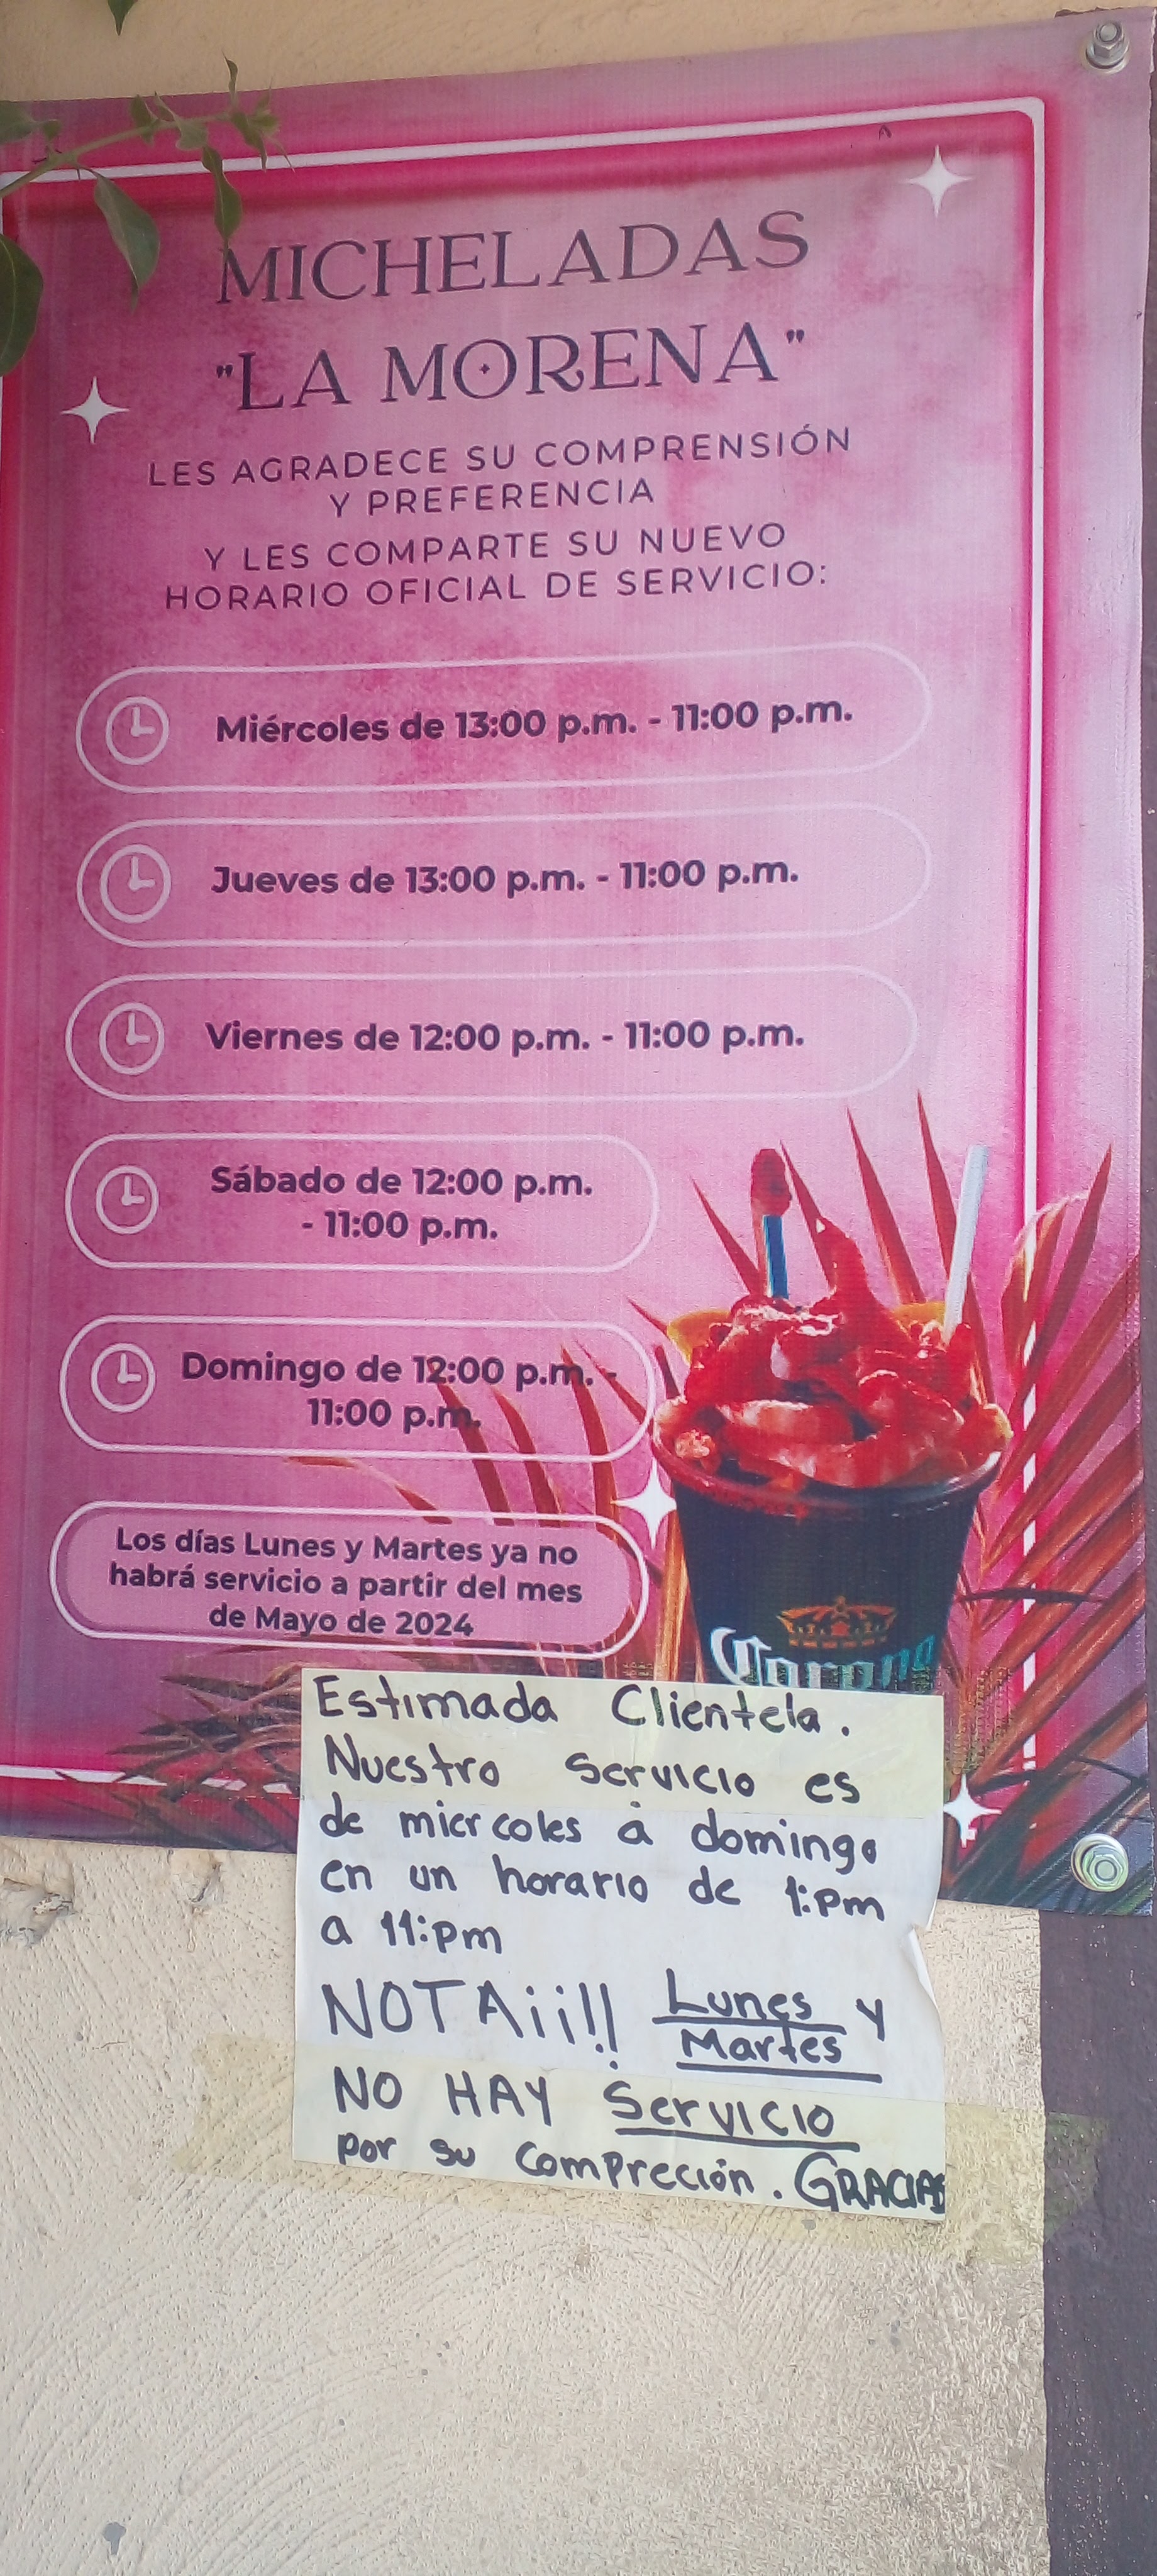 MICHELADAS
"LA MORENA"
LES AGRADECE SU COMPRENSIÓN
Y PREFERENCIA
Y LES COMPARTE SU NUEVO
HORARIO OFICIAL DE SERVICIO:
Miércoles de 13:00 p.m. - 11:00 p.m.
Jueves de 13:00 p.m. - 11:00 p.m.
Viernes de 12:00 p.m. - 11:00 p.m.
Sábado de 12:00 p.m.
- 11:00 p.m.
Domingo de 12:00 p.m. -
11:00 p.m.
Los días Lunes y Martes ya no
habrá servicio a partir del mes
de Mayo de 2024
Corona
Estimada Clientela.
Nuestro servicio es
de miercoles a domingo
en un horario de 1:pm
a 11:pm
NOTA¡¡!! Lunes y
Martes
NO HAY Servicio
por su compreción. GRACIAS